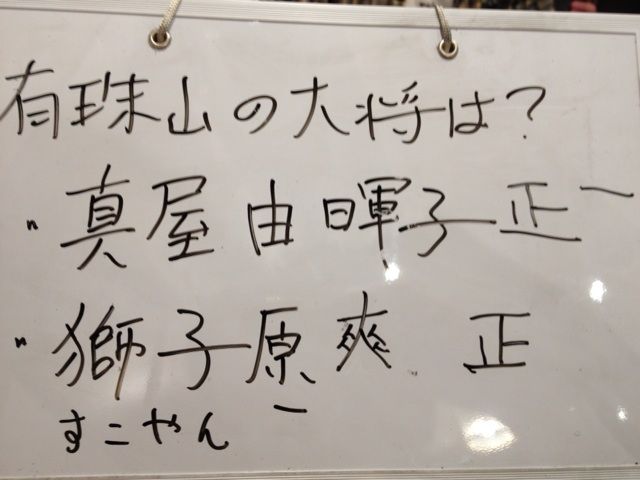 有珠山の大将は?
" 真屋由暉子 正一
" 獅子原爽 正
一
すこやん